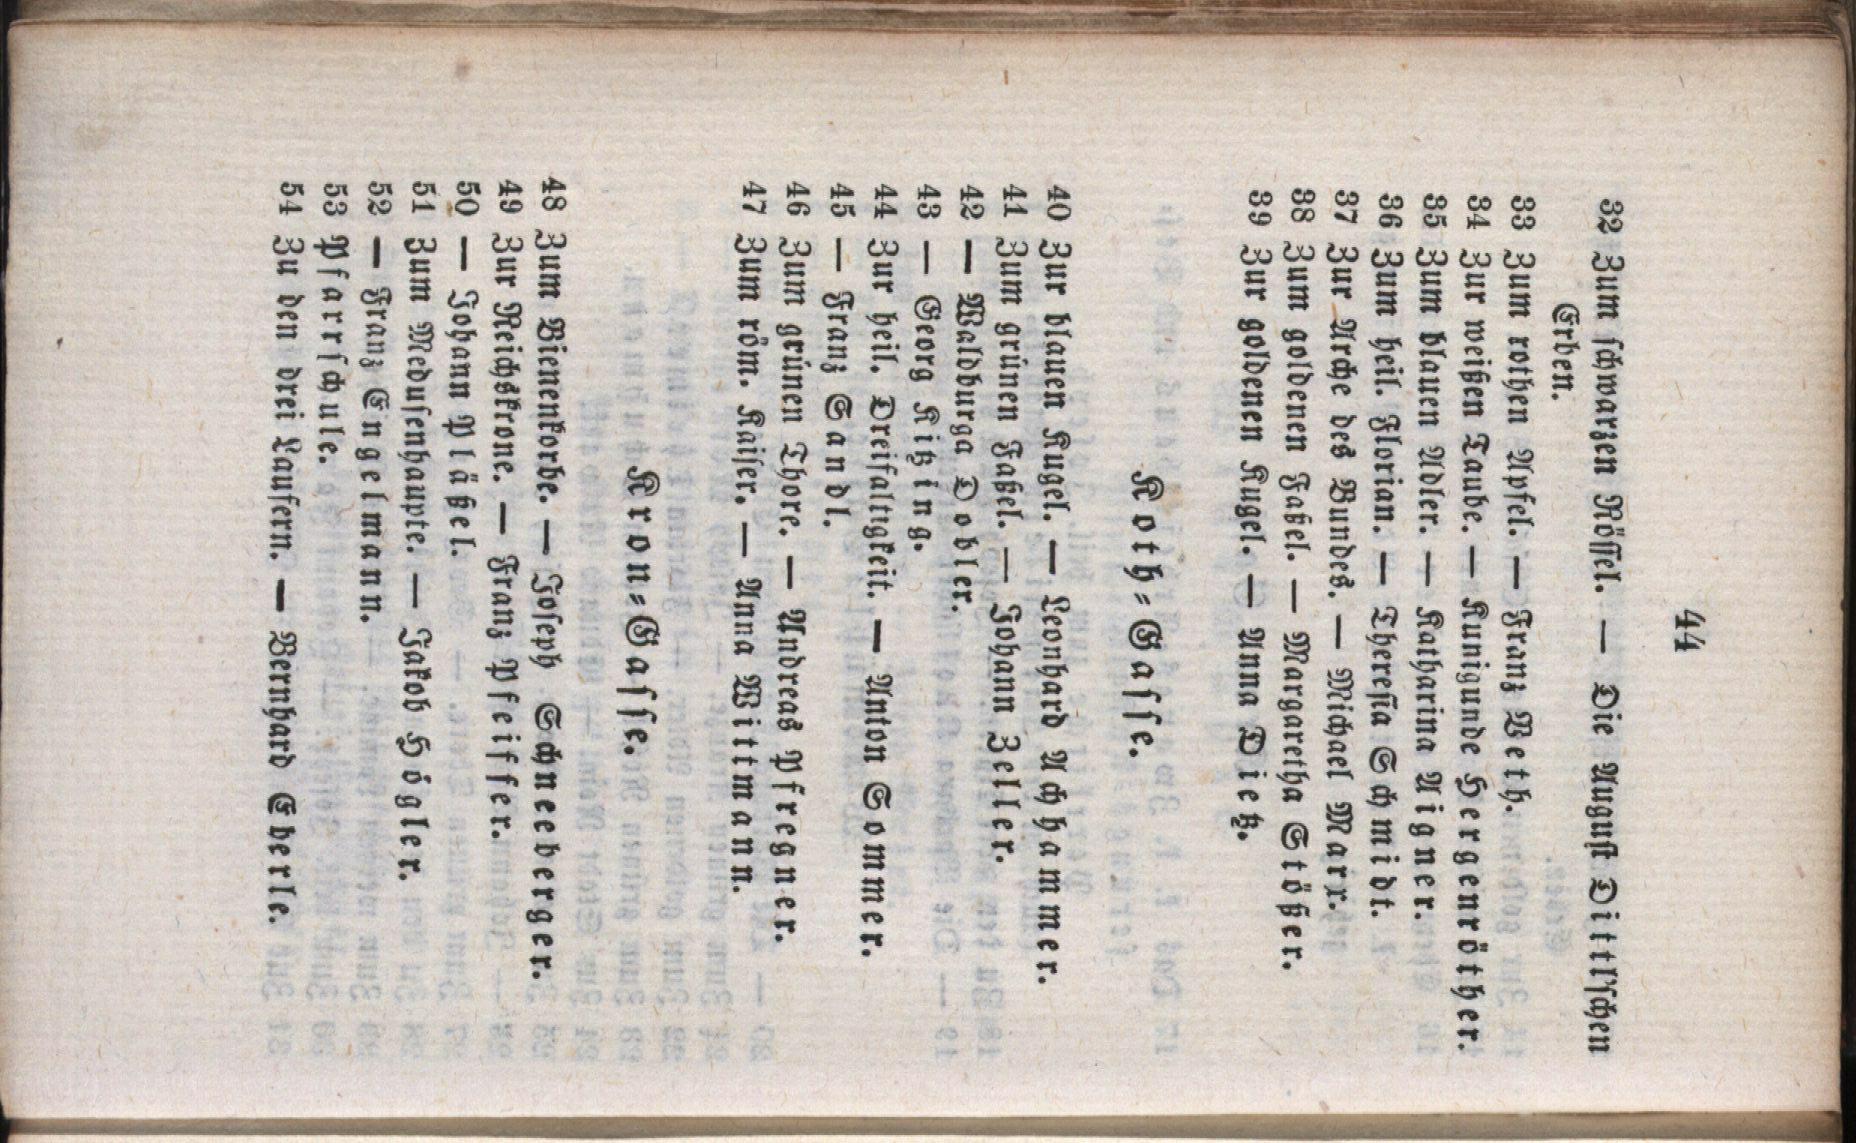 44
32 Zum schwarzen Rössel. — Die August Dittl'schen
Erben.
33 Zum rothen Apfel. — Franz Beth.
34 Zur weißen Taube. — Kunigunde Hergenröther.
35 Zum blauen Adler. — Katharina Aigner.
36 Zum heil. Florian. — Theresia Schmidt.
37 Zur Arche des Bundes. — Michael Marx.
38 Zum goldenen Faßel. — Margaretha Stößer.
39 Zur goldenen Kugel. — Anna Dietz.
Koth-Gasse.
40 Zur blauen Kugel. — Leonhard Achhammer.
41 Zum grünen Faßel. — Johann Zeller.
42 — Waldburga Dobler.
43 — Georg Kitzing.
44 Zur heil. Dreifaltigkeit. — Anton Sommer.
45 — Franz Sandl.
46 Zum grünen Thore. — Andreas Pfregner.
47 Zum röm. Kaiser. — Anna Wittmann.
Kron-Gasse.
48 Zum Bienenkorbe. — Joseph Schneeberger.
49 Zur Reichskrone. — Franz Pfeiffer.
50 — Johann Pläßel.
51 Zum Medusenhaupte. — Jakob Högler.
52 — Franz Engelmann.
53 Pfarrschule.
54 Zu den drei Laufern. — Bernhard Eberle.